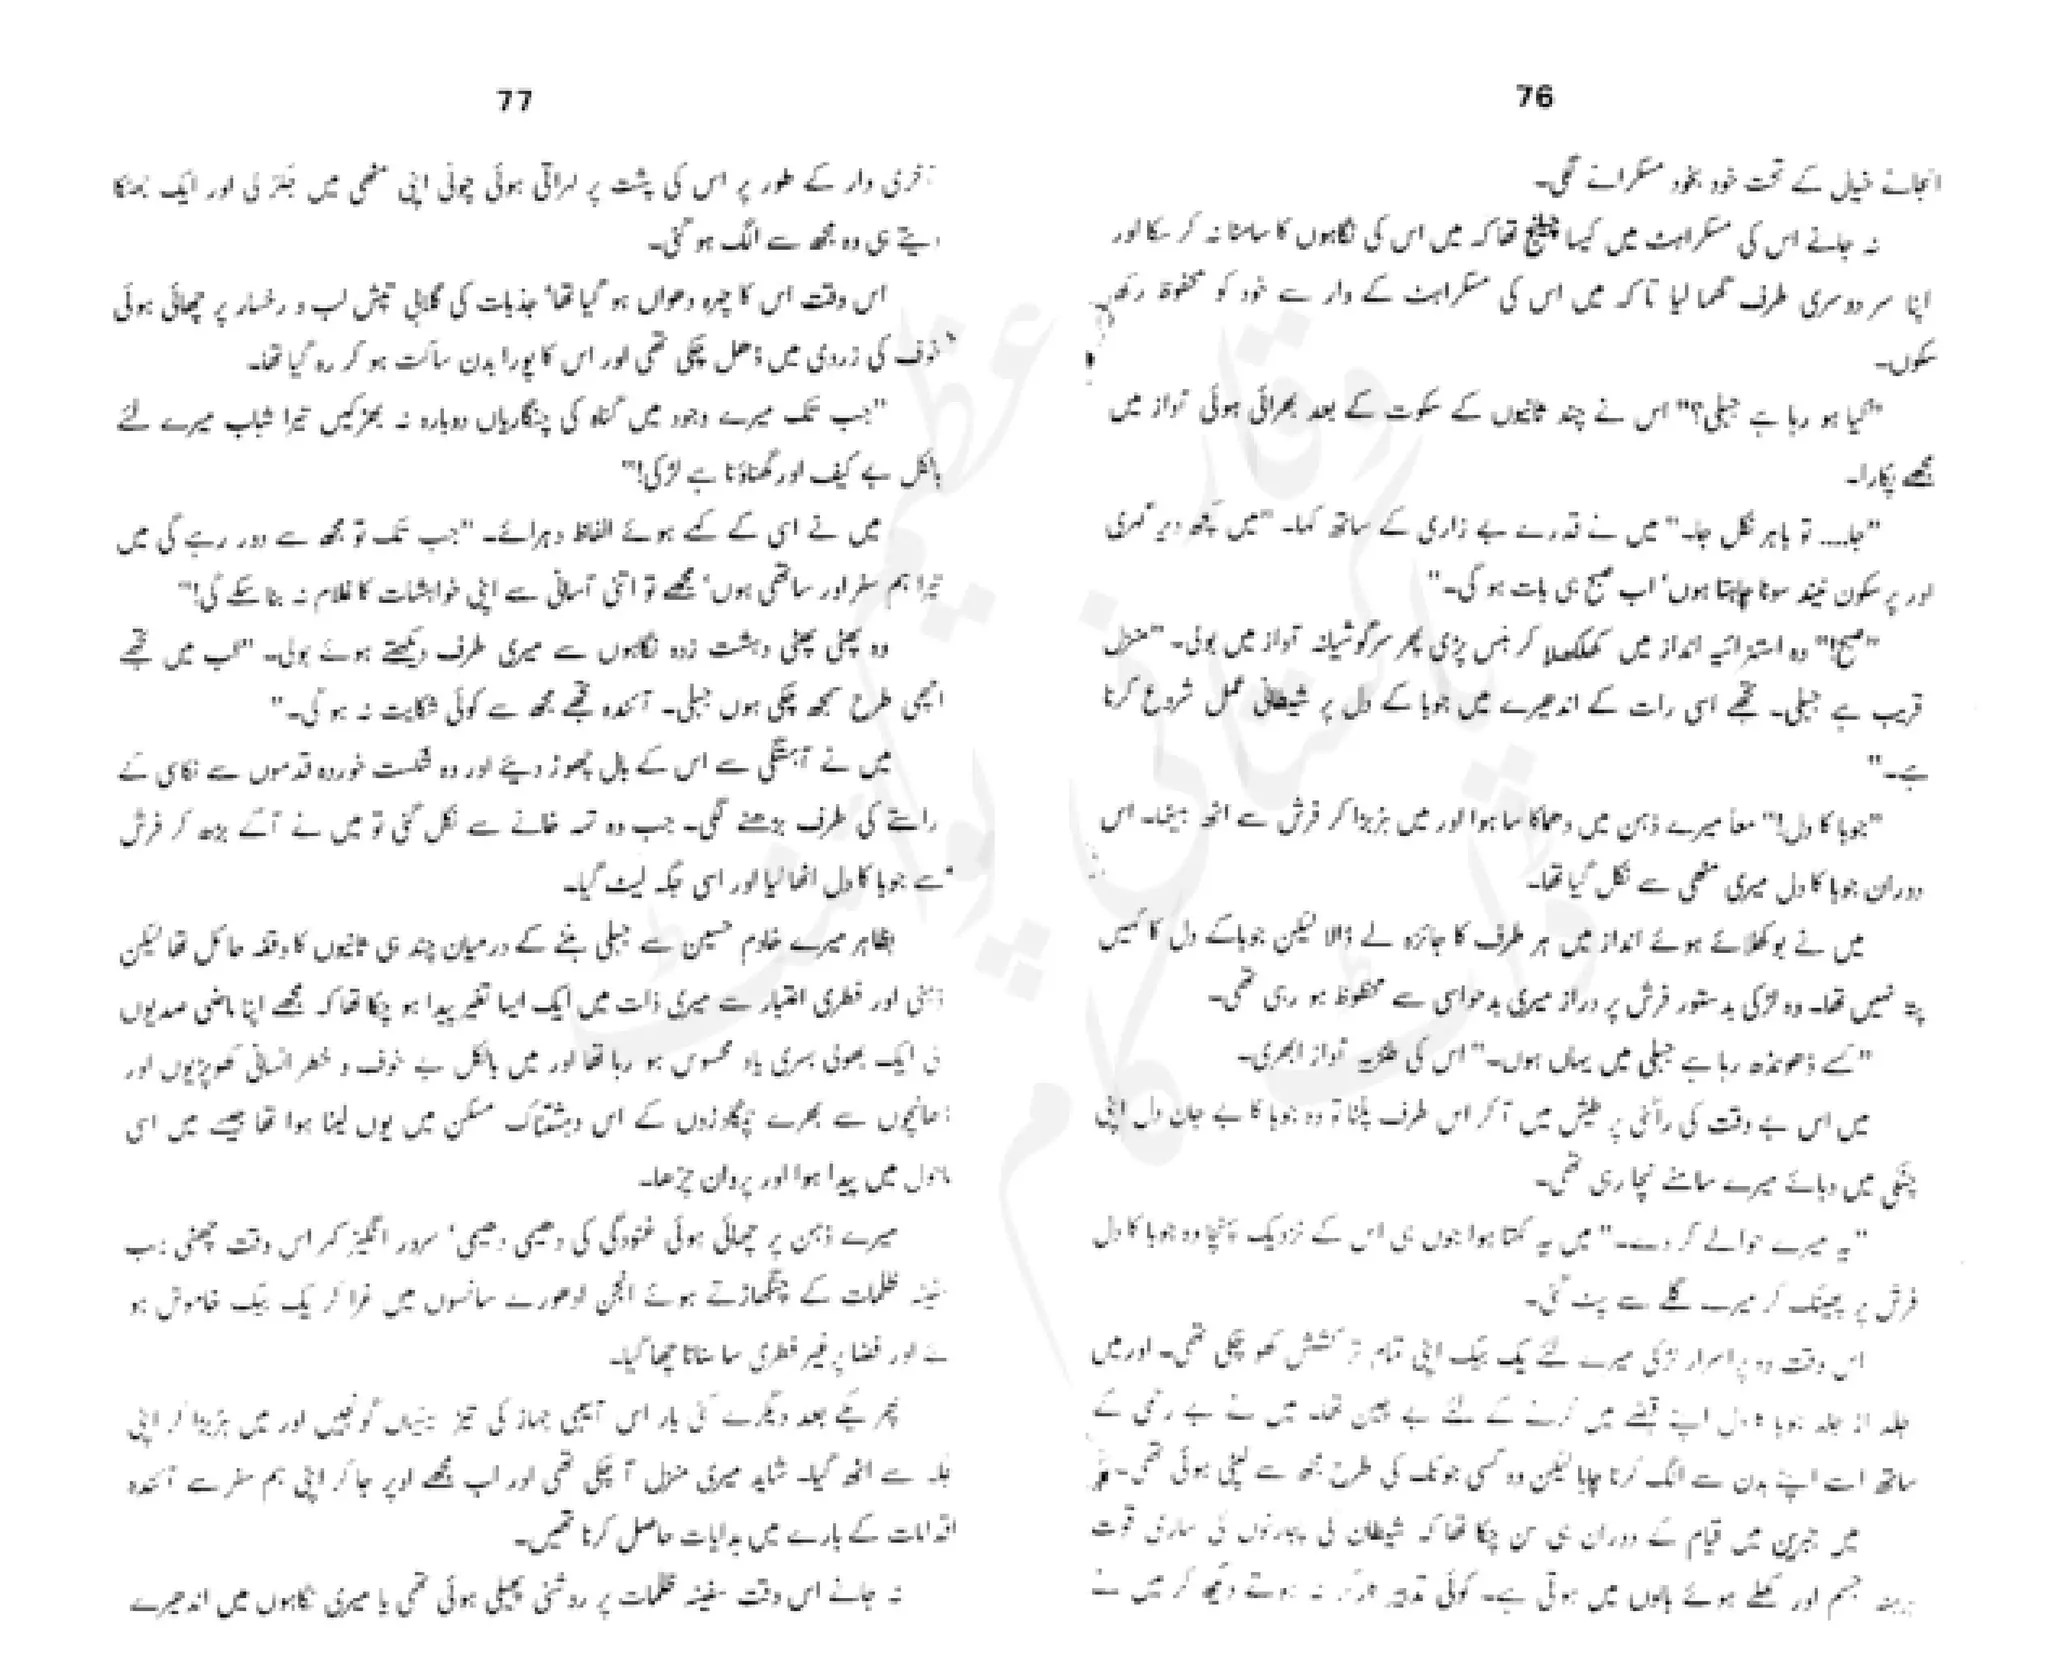 76
انجانے خیال کے تحت خود بخود مسکرانے لگی۔
نہ جانے اس کی مسکراہٹ میں کیسا چیلنج تھا کہ میں اس کی نگاہوں کا سامنا نہ کر سکا اور
اپنا سر دوسری طرف گھما لیا تاکہ میں اس کی مسکراہٹ کے وار سے خود کو محفوظ رکھ
سکوں۔
"کیا ہو رہا ہے جبلی؟" اس نے چند ثانیوں کے سکوت کے بعد بھرائی ہوئی آواز میں
مجھے پکارا۔
"جا.... تو باہر نکل جا۔" میں نے قدرے بے زاری کے ساتھ کہا۔ "میں کچھ دیر گہری
اور پر سکون نیند سونا چاہتا ہوں‘ اب صبح ہی بات ہو گی۔"
"صبح!" وہ استہزائیہ انداز میں کھلکھلا کر ہنس پڑی پھر سرگوشیانہ آواز میں بولی۔ "منزل
قریب ہے جبلی۔ تجھے اسی رات کے اندھیرے میں جوبا کے دل پر شیطانی عمل شروع کرنا
ہے۔"
"جوبا کا دل!" معاً میرے ذہن میں دھماکا سا ہوا اور میں ہڑبڑا کر فرش سے اٹھ بیٹھا۔ اس
دوران جوبا کا دل میری مٹھی سے نکل گیا تھا۔
میں نے بوکھلائے ہوئے انداز میں ہر طرف کا جائزہ لے ڈالا لیکن جوبا کے دل کا کہیں
پتہ نہیں تھا۔ وہ لڑکی بدستور فرش پر دراز میری بدحواسی سے محظوظ ہو رہی تھی۔
"کسے ڈھونڈھ رہا ہے جبلی میں یہاں ہوں۔" اس کی طنزیہ آواز ابھری۔
میں اس بے وقت کی راگنی پر طیش میں آ کر اس طرف پلٹا تو وہ جوبا کا بے جان دل اپنی
چٹکی میں دبائے میرے سامنے نچا رہی تھی۔
"یہ میرے حوالے کر دے۔" میں یہ کہتا ہوا جوں ہی اس کے نزدیک پہنچا وہ جوبا کا دل
فرش پر پھینک کر میرے گلے سے لپٹ گئی۔
اس وقت وہ پراسرار لڑکی میرے لئے یک بیک اپنی تمام تر کشش کھو چکی تھی۔ اور میں
جلد از جلد جوبا کا دل اپنے قبضے میں کرنے کے لئے بے چین تھا۔ میں نے بے رخی کے
ساتھ اسے اپنے بدن سے الگ کرنا چاہا لیکن وہ کسی جونک کی طرح مجھ سے لپٹی ہوئی تھی۔
میں میں قیام کے دوران ہی سن چکا تھا کہ شیطان کی پجارنوں کی ساری قوت
برہنہ جسم اور کھلے ہوئے بالوں میں ہوتی ہے۔ کوئی تدبیر کارگر نہ ہوتے دیکھ کر میں نے
77
آخری وار کے طور پر اس کی پشت پر لہراتی ہوئی چوٹی اپنی مٹھی میں جکڑ لی اور ایک جھٹکا
دیتے ہی وہ مجھ سے الگ ہو گئی۔
اس وقت اس کا چہرہ دھواں ہو گیا تھا‘ جذبات کی گلابی تپش لب و رخسار پر چھائی ہوئی
خوف کی زردی میں ڈھل چکی تھی اور اس کا پورا بدن ساکت ہو کر رہ گیا تھا۔
"جب تک میرے وجود میں گناہ کی چنگاریاں دوبارہ نہ بھڑکیں تیرا شباب میرے لئے
بالکل بے کیف اور گھناؤنا ہے لڑکی!"
میں نے اسی کے کہے ہوئے الفاظ دہرائے۔ "جب تک تو مجھ سے دور رہے گی میں
تیرا ہم سفر اور ساتھی ہوں‘ مجھے تو اتنی آسانی سے اپنی خواہشات کا غلام نہ بنا سکے گی!"
وہ پھٹی پھٹی دہشت زدہ نگاہوں سے میری طرف دیکھتے ہوئے بولی۔ "اب میں تجھے
اچھی طرح سمجھ چکی ہوں جبلی۔ آئندہ تجھے مجھ سے کوئی شکایت نہ ہو گی۔"
میں نے آہستگی سے اس کے بال چھوڑ دیئے اور وہ شکست خوردہ قدموں سے نکاسی کے
راستے کی طرف بڑھنے لگی۔ جب وہ تہہ خانے سے نکل گئی تو میں نے آگے بڑھ کر فرش
سے جوبا کا دل اٹھا لیا اور اسی جگہ لیٹ گیا۔
بظاہر میرے خادم حسین سے جبلی بننے کے درمیان چند ہی ثانیوں کا وقفہ حائل تھا لیکن
ذہنی اور فطری اعتبار سے میری ذات میں ایک ایسا تغیر پیدا ہو چکا تھا کہ مجھے اپنا ماضی صدیوں
کی ایک بھولی بسری یاد محسوس ہو رہا تھا اور میں بالکل بے خوف و خطر انسانی کھوپڑیوں اور
ڈھانچوں سے بھرے چمگادڑوں کے اس دہشتناک مسکن میں یوں لیٹا ہوا تھا جیسے میں اسی
ماحول میں پیدا ہوا اور پروان چڑھا۔
میرے ذہن پر چھائی ہوئی غنودگی کی دھیمی دھیمی‘ سرور انگیز کہر اس وقت چھٹی جب
سفینہ ظلمات کے چنگھاڑتے ہوئے انجن ادھورے سانسوں میں غرا کر یک بیک خاموش ہو
گئے اور فضا پر غیر فطری سا سناٹا چھا گیا۔
پھر یکے بعد دیگرے کئی بار اس آسیبی جہاز کی تیز سیٹیاں گونجیں اور میں ہڑبڑا کر اپنی
جگہ سے اٹھ گیا۔ شاید میری منزل آ چکی تھی اور اب مجھے اوپر جا کر اپنی ہم سفر سے آئندہ
اقدامات کے بارے میں ہدایات حاصل کرنا تھیں۔
نہ جانے اس وقت سفینہ ظلمات پر روشنی پھیلی ہوئی تھی یا میری نگاہوں میں اندھیرے
وقار عظیم
پاکستانی پوائنٹ
ڈاٹ کام